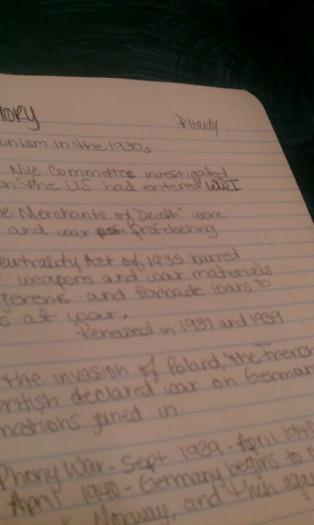 tory
P Hardy
onism in the 1930s
Nye Committee investigated
on the US had entered WWI
e Merchants of Death" were
and war profiteering
eutrality Act of 1935 barred
weapons and war materials
gerents and forbade loans to
s at war.
Renewed in 1937 and 1939
the invasion of Poland, the French
ritish declared war on German
nations joined in.
Phony War - Sept 1939 - April 1940
April 1940 - Germany begins to
Norway, and then aga